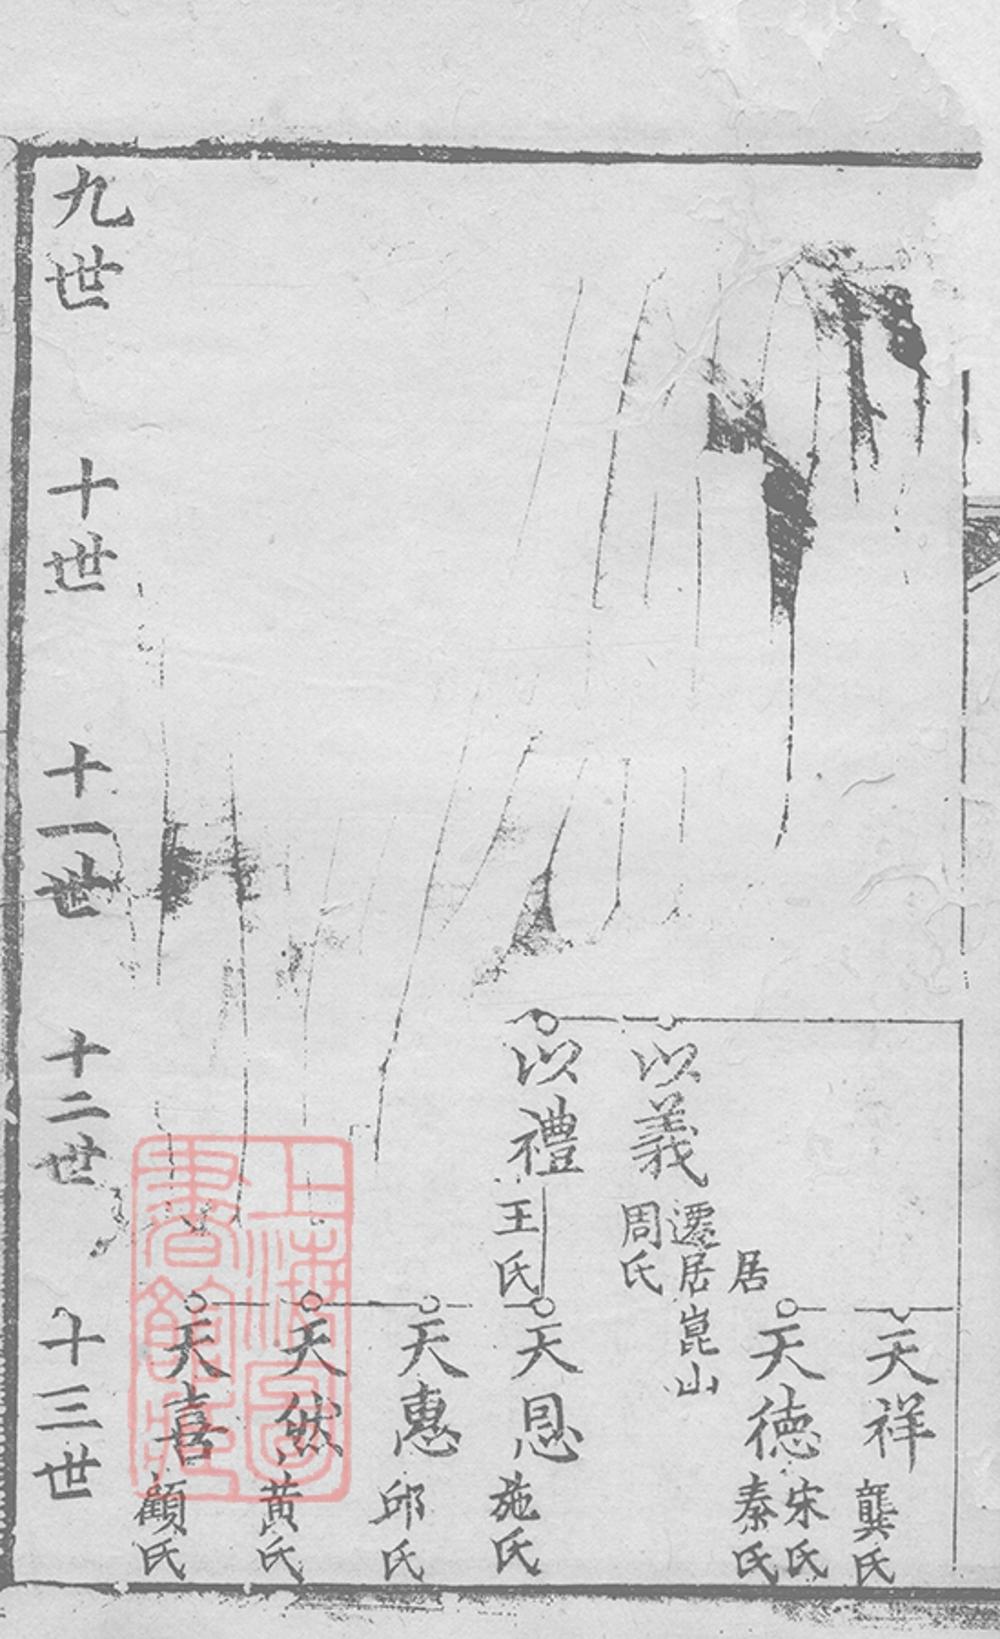 天祥
龔氏
天德
宋氏
秦氏
居
以義
遷居崑山
周氏
以禮
王氏
天恩
施氏
天惠
邱氏
天然
黃氏
天喜
顧氏
九世
十世
十一世
十二世
十三世
上海圖
書館藏